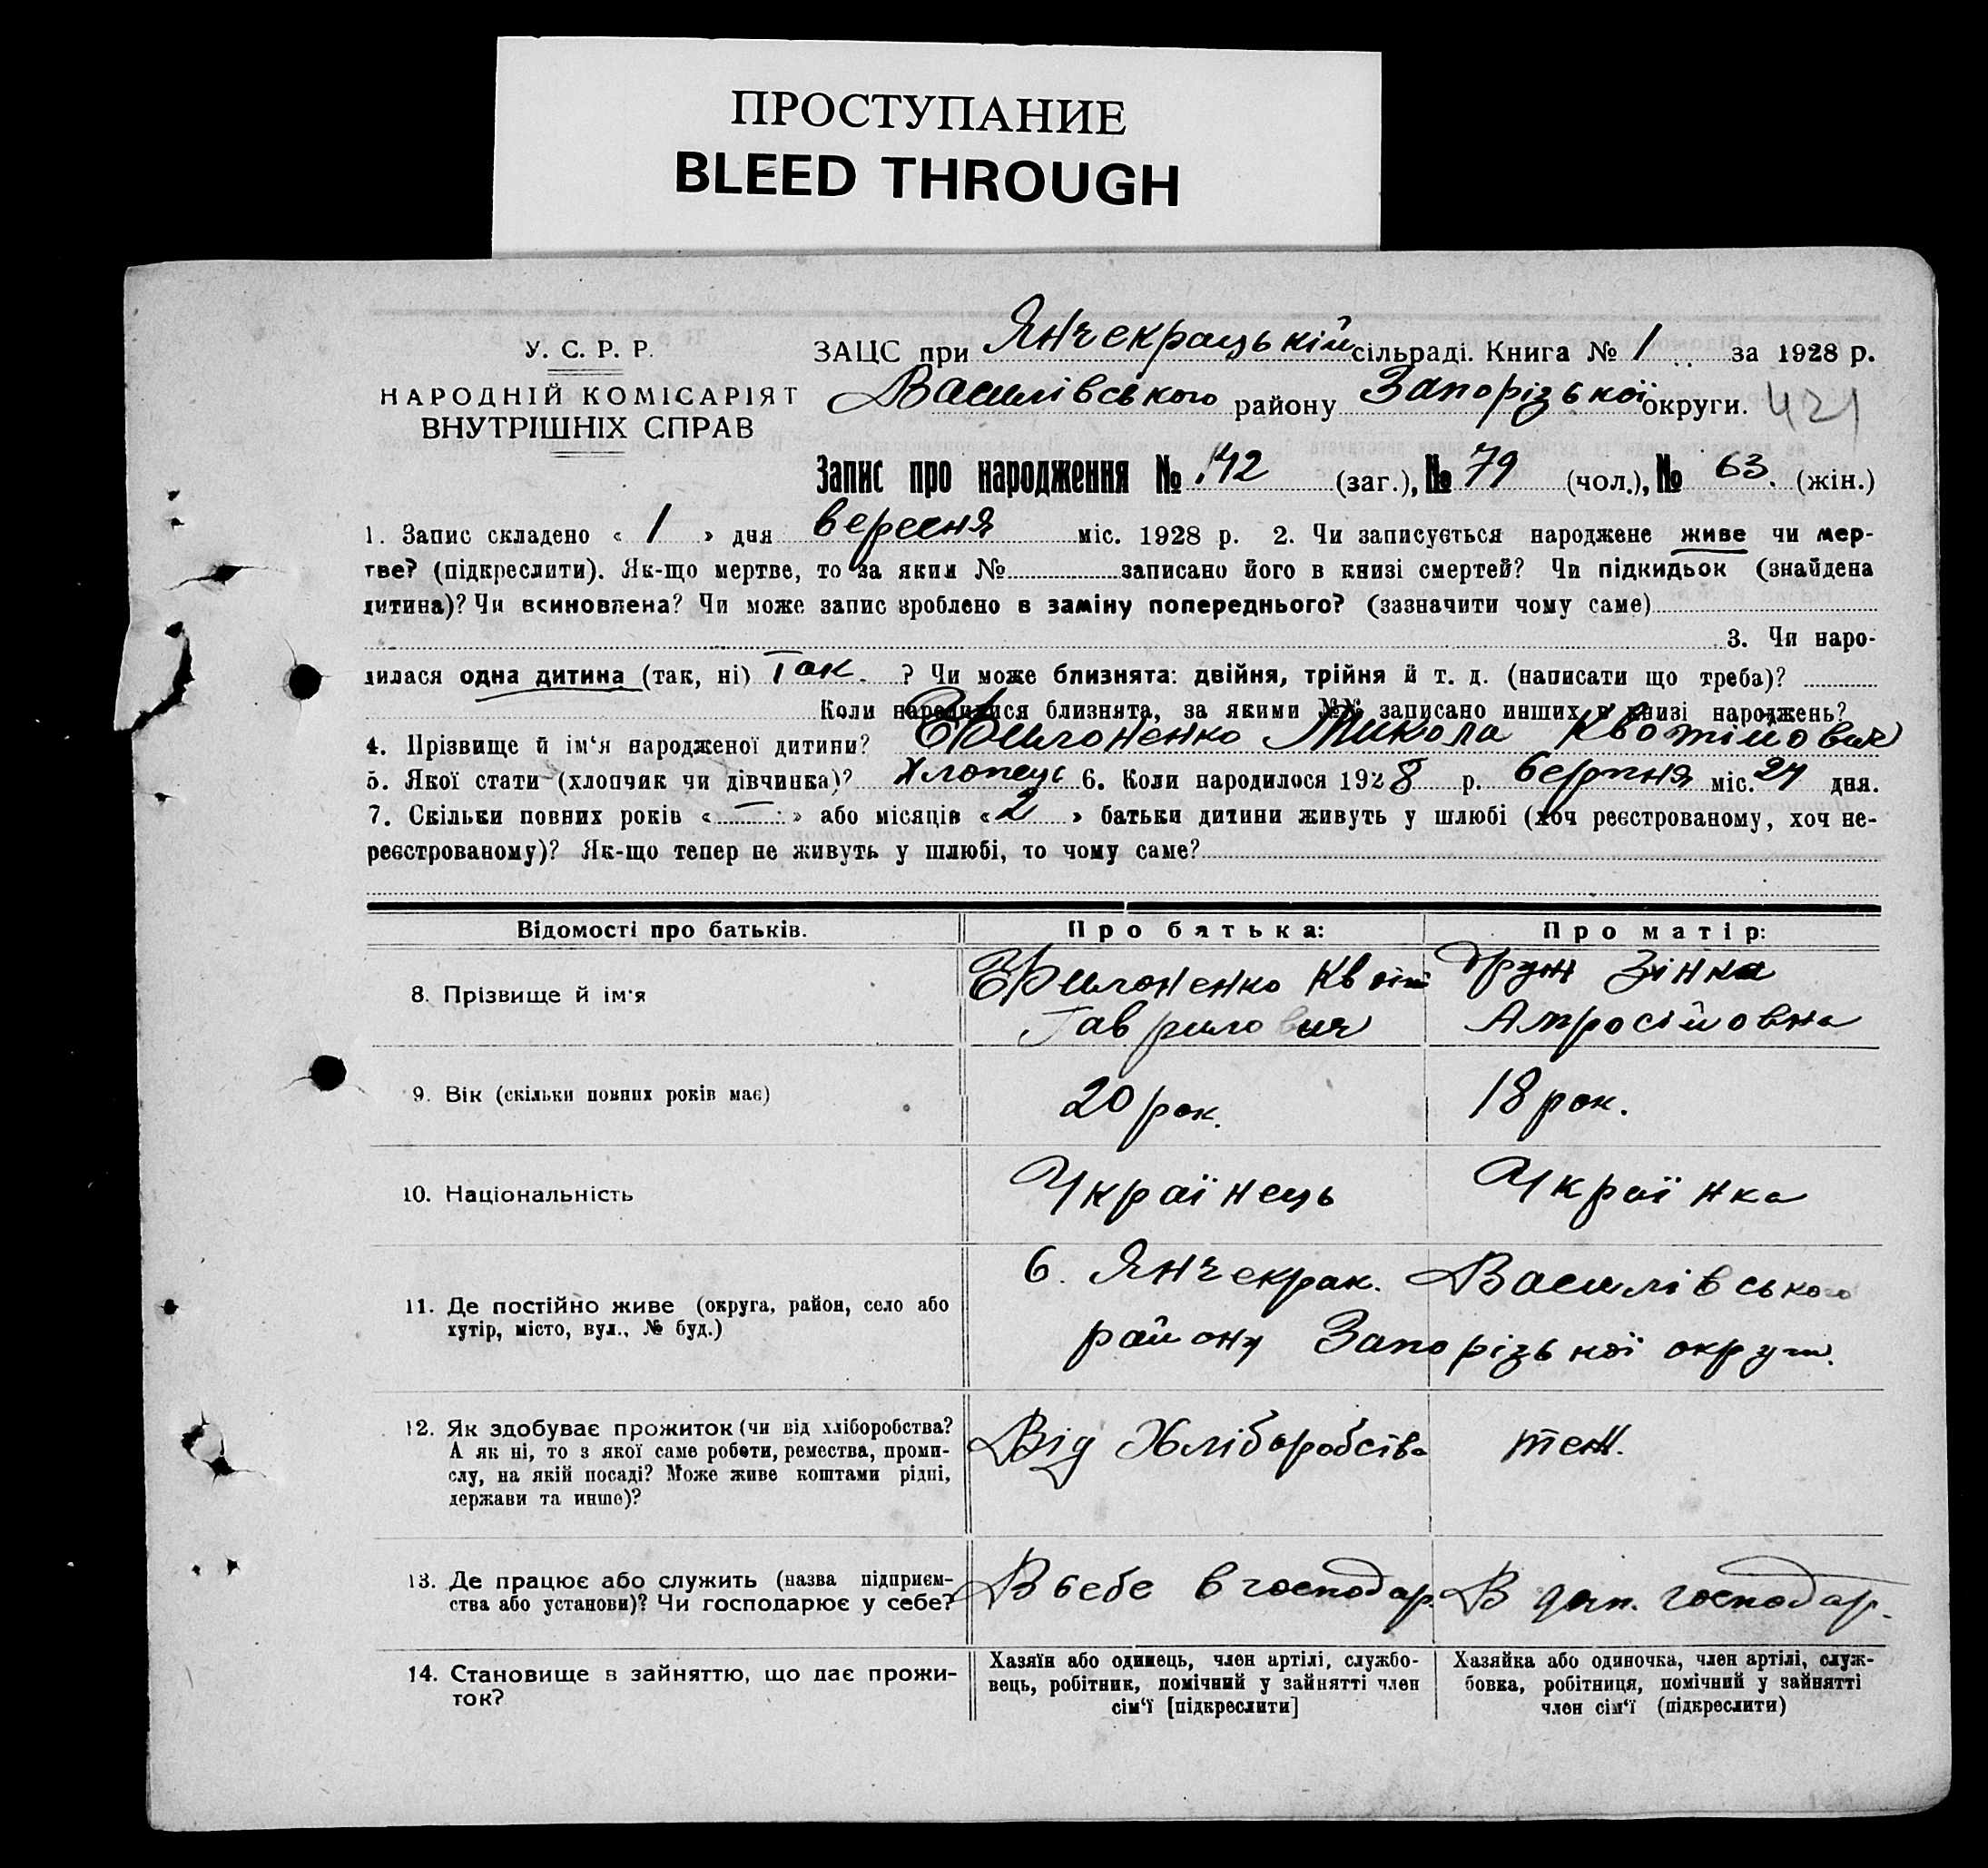 ПРОСТУПАНИЕ
BLEED THROUGH
У. С. Р. Р.
НАРОДНІЙ КОМІСАРІЯТ
ВНУТРІШНІХ СПРАВ
ЗАЦС при Янчекрацькій сільраді. Книга № 1 за 1928 р.
Василівського району Запорізької округи. 421
Запис про народження № 142 (заг.), № 79 (чол.), № 63. (жін.)
1. Запис складено « 1 » дня вересня міс. 1928 р. 2. Чи записується народжене живе чи мер-
тве? (підкреслити). Як-що мертве, то за яким № записано його в книзі смертей? Чи підкидьок (знайдена
дитина)? Чи всиновлена? Чи може запис зроблено в заміну попереднього? (зазначити чому саме)
3. Чи наро-
дилася одна дитина (так, ні) Так. ? Чи може близнята: двійня, трійня й т. д. (написати що треба)?
Коли народилися близнята, за якими №№ записано инших в книзі народжень?
4. Прізвище й ім‘я народженої дитини? Филоненко Микола
5. Якої стати (хлопчик чи дівчинка)? Хлопець 6. Коли народилося 1928 р. серпня міс. 27 дня.
7. Скільки повних років « — » або місяців « 2 » батьки дитини живуть у шлюбі (хоч реєстрованому, хоч не-
реєстрованому)? Як-що тепер не живуть у шлюбі, то чому саме?
Відомості про батьків.
Про батька:
Про матір:
8. Прізвище й ім‘я
Филоненко
Гаврилович
Зінка
Амросійовна
9. Вік (скільки повних років має)
20 рок.
18 рок.
10. Національність
Українець
Українка
11. Де постійно живе (округа, район, село або
хутір, місто, вул., № буд.)
с. Янчекрак. Василівського
району Запорізької округи.
12. Як здобуває прожиток (чи від хліборобства?
А як ні, то з якої саме роботи, ремества, проми-
слу, на якій посаді? Може живе коштами рідні,
держави та инше)?
Від Хліборобства
теж.
13. Де працює або служить (назва підприєм-
ства або установи)? Чи господарює у себе?
В себе в господар.
В господар.
14. Становище в зайняттю, що дає прожи-
ток?
Хазяїн або одинець, член артілі, службо-
вець, робітник, помічний у зайнятті член
сім‘ї [підкреслити]
Хазяйка або одиночка, член артілі, служ-
бовка, робітниця, помічний у зайнятті
член сім‘ї (підкреслити)